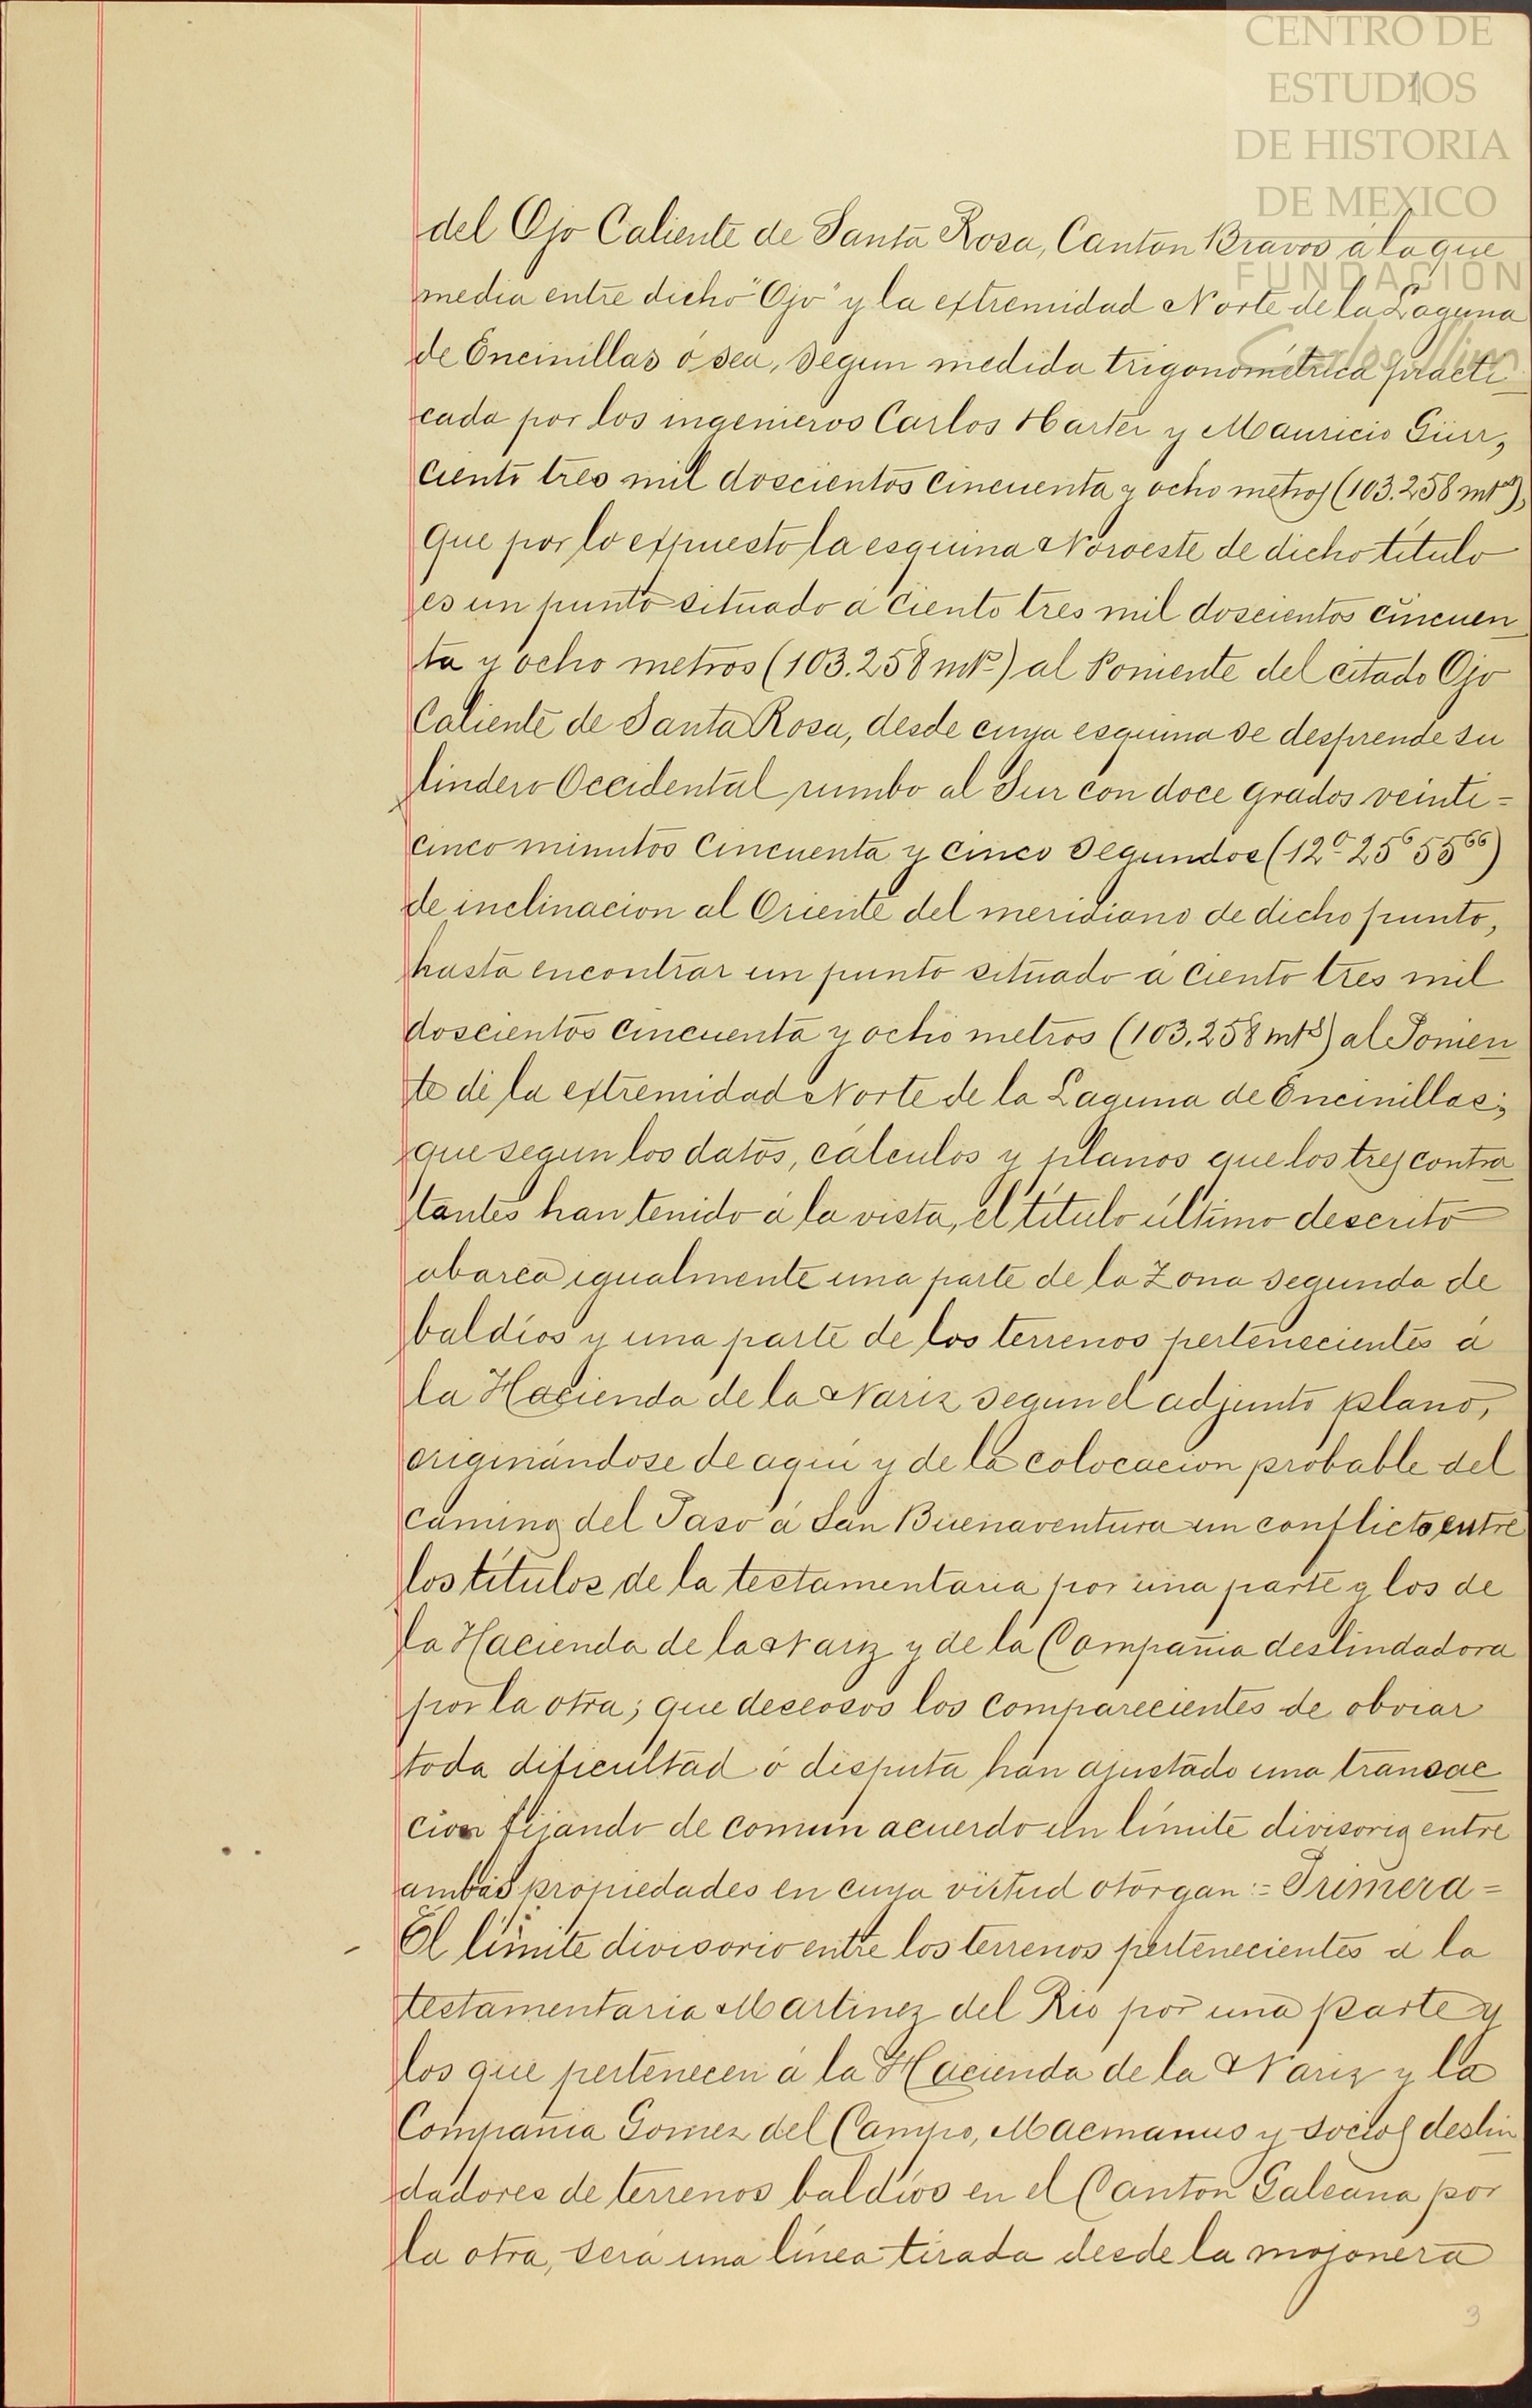 CENTRO DE
ESTUDIOS
DE HISTORIA
DE MEXICO
FUNDACIÓN
Carlos Slim
del Ojo Caliente de Santa Rosa, Canton Bravos á la que
media entre dicho "Ojo" y la extremidad Norte de la Laguna
de Encinillas ó sea, segun medida trigonométrica practi
cada por los ingenieros Carlos Harter y Mauricio Güer,
ciento tres mil doscientos cincuenta y ocho metros (103.258 mts),
que por lo expuesto la esquina Noroeste de dicho título
es un punto situado á ciento tres mil doscientos cincuen
ta y ocho metros (103.258 mts) al Poniente del citado Ojo
Caliente de Santa Rosa, desde cuya esquina se desprende su
lindero Occidental rumbo al Sur con doce grados veinti=
cinco minutos cincuenta y cinco segundos (12º 25' 55")
de inclinacion al Oriente del meridiano de dicho punto,
hasta encontrar un punto situado á ciento tres mil
doscientos cincuenta y ocho metros (103.258 mts) al Ponien
te de la extremidad Norte de la Laguna de Encinillas;
que segun los datos, cálculos y planos que los tres contra
tantes han tenido á la vista, el título último descrito
abarca igualmente una parte de la Zona segunda de
baldíos y una parte de los terrenos pertenecientes á
la Hacienda de la Nariz segun el adjunto plano,
originándose de aquí y de la colocacion probable del
camino del Paso á San Buenaventura un conflicto entre
los títulos de la testamentaria por una parte y los de
la Hacienda de la Nariz y de la Compañia deslindadora
por la otra; que deseosos los comparecientes de obviar
toda dificultad ó disputa han ajustado una transac
cion fijando de comun acuerdo un límite divisorio entre
ambas propiedades en cuya virtud otorgan:= Primera=
El límite divisorio entre los terrenos pertenecientes á la
testamentaria Martinez del Rio por una parte y
los que pertenecen á la Hacienda de la Nariz y la
Compañia Gomez del Campo, Macmanus y socios deslin
dadores de terrenos baldíos en el Canton Galeana por
la otra, será una línea tirada desde la mojonera
3